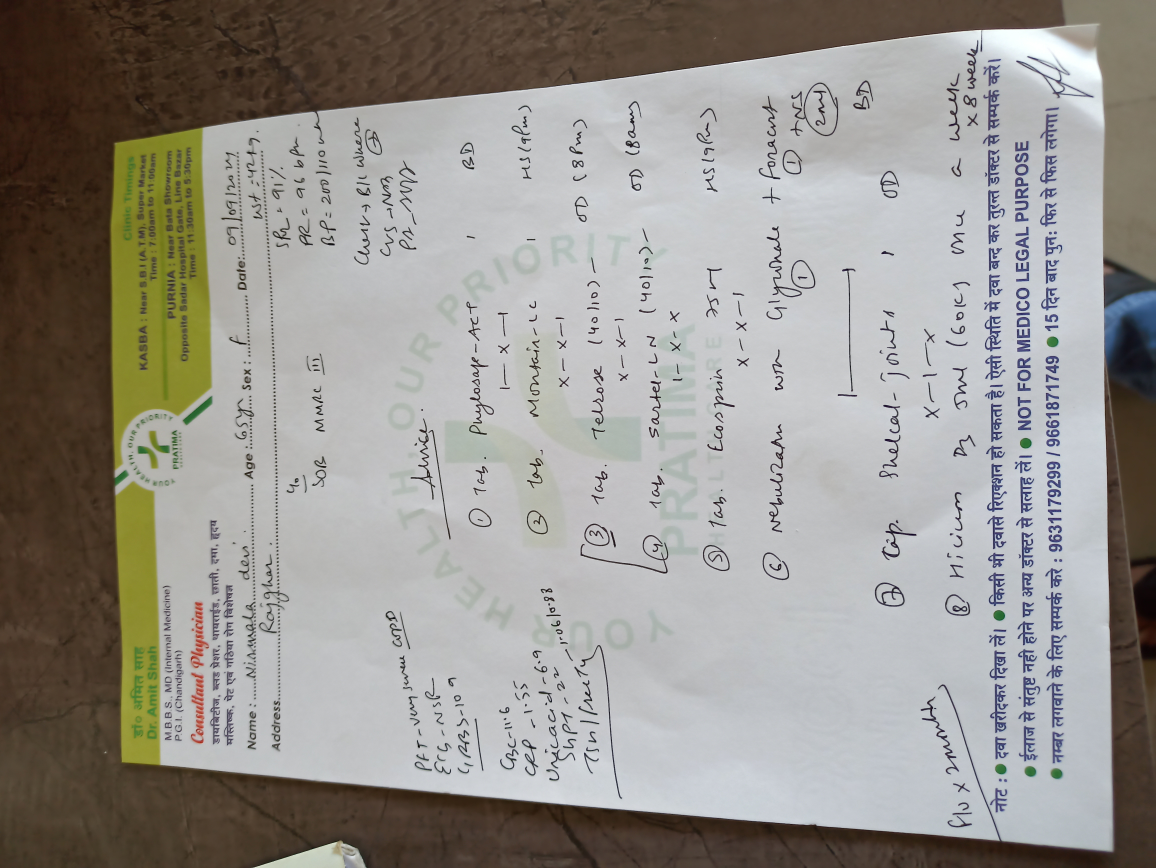 डा० अमित साह
Dr. Amit Shah
M.B.B.S., MD (Internal Medicine)
P.G.I. (Chandigarh)
Consultant Physician
डायबिटीज, ब्लड प्रेशर, थायराईड, छाती, दमा, हृदय
मस्तिष्क, पेट एवं गठिया रोग विशेषज्ञ
YOUR HEALTH, OUR PRIORITY
PRATIMA
Clinic Timings
KASBA : Near S.B.I (A.T.M), Super Market
Time : 7:00am to 11:00am
PURNIA : Near Bata Showroom
Opposite Sadar Hospital Gate, Line Bazar
Time : 11:30am to 5:30pm
Name : Nirmala devi Age : 65yr Sex : F Date: 09/09/20
Address Rajghar Wt = 42kg
SOB MMRC III
SPO2 = 91%
PR = 96 bpm
BP = 200/110
Chest → B/L Wheeze
CVS → NS
PFT - very severe COPD
ECG - NSR
RBS - 109
CBC - 11.6
CRP - 1.55
Uric acid - 6.9
SGPT - 22
Advice
① Tab. Phylosap-ACT 1 BD
1 - x - 1
② Tab. Montair-LC 1 HS (9pm)
x - x - 1
③ Tab. Telrose (40/10) - OD (8pm)
x - x - 1
④ Tab. Sartel-LN (40/10) - OD (8am)
1 - x - x
⑤ Tab. Ecosprin 75 HS (9pm)
x - x - 1
⑥ Nebulization with Glycohale + Foracort
① ① + NS
BD
⑦ Cap. Shelcal-joints 1 OD
x - 1 - x
⑧ D3 5ml (60K) once a week
x 8 week
F/U x 2 month
YOUR HEALTH, OUR PRIORITY
PRATIMA
HEALTHCARE
नोट : ● दवा खरीदकर दिखा लें। ● किसी भी दवासे रिएक्शन हो सकता है। ऐसी स्थिति में दवा बन्द कर तुरन्त डॉक्टर से सम्पर्क करें।
● ईलाज से संतुष्ट नही होने पर अन्य डॉक्टर से सलाह लें। ● NOT FOR MEDICO LEGAL PURPOSE
● नम्बर लगवाने के लिए सम्पर्क करे : 9631179299 / 9661871749 ● 15 दिन बाद पुन: फिर से फिस लगेगा।